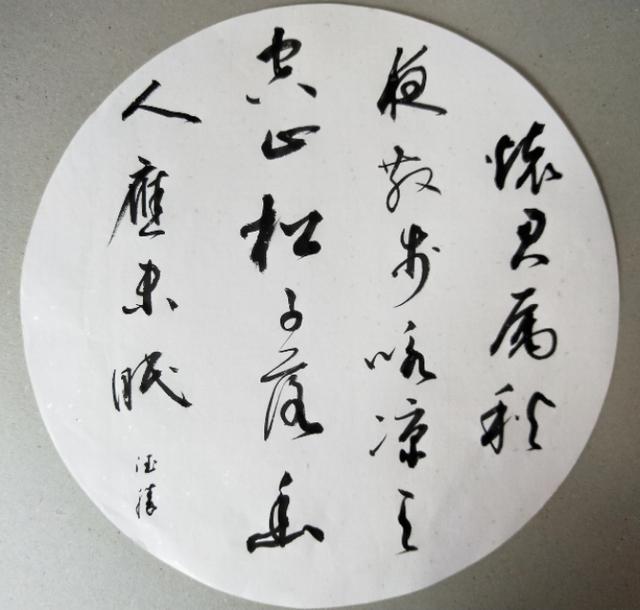 懷君属秋
夜散步咏凉天
空山松子落幽
人應未眠
德勝